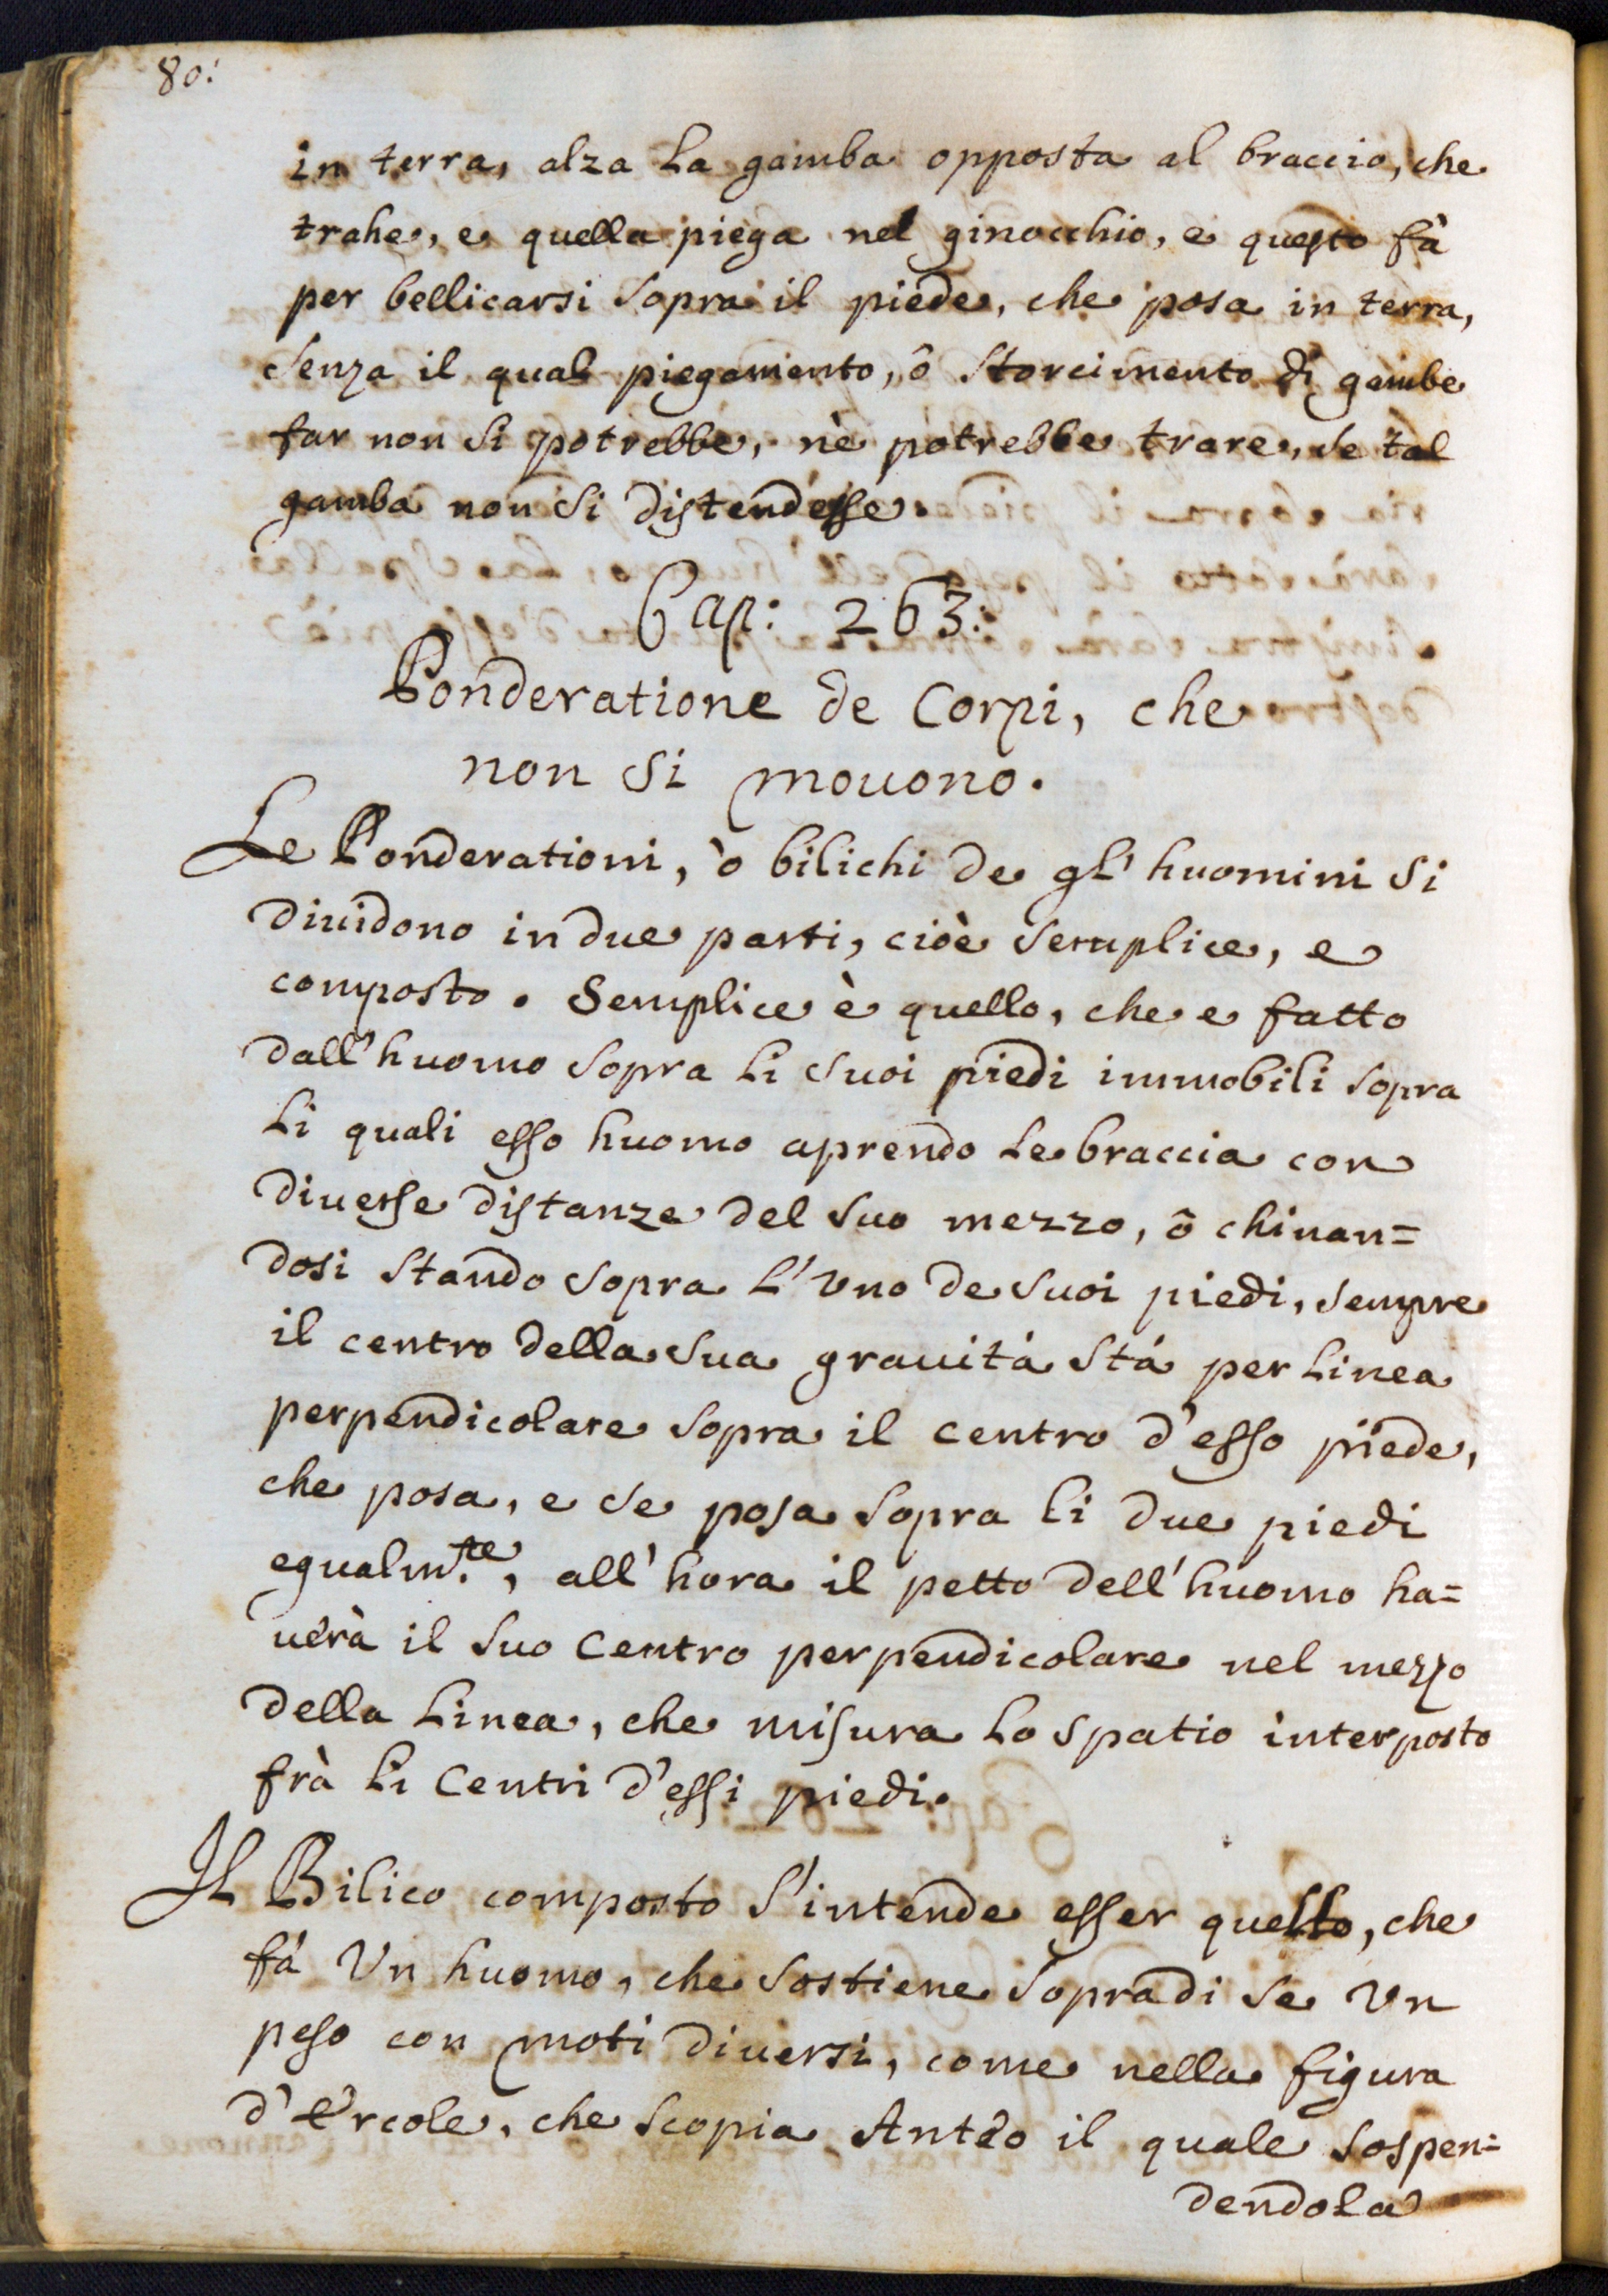 80:
in terra, alza la gamba opposta al braccio, che
trahe, e quella piega nel ginocchio, e questo fà
per bellicarsi sopra il piede, che posa in terra,
senza il qual piegamento, ò storcimento di gambe
far non si potrebbe, nè potrebbe trare, se tal
gamba non si distendesse.
Cap: 263:
Ponderatione de Corpi, che
non si mouono.
Le Ponderationi, ò bilichi de gl' huomini si
diuidono in due parti, cioè semplice, e
composto. Semplice è quello, che e fatto
dall'huomo sopra li suoi piedi immobili sopra
li quali esso huomo aprendo le braccia con
diuerse distanze del suo mezzo, ô chinan=
dosi stando sopra l'vno de suoi piedi, sempre
il centro della sua grauità stà per linea
perpendicolare sopra il centro d'esso piede,
che posa, e se posa sopra li due piedi
egualm.te, all'hora il petto dell'huomo ha=
uerà il suo Centro perpendicolare nel mezzo
della linea, che misura lo spatio interposto
frà li Centri d'essi piedi.
Il Bilico composto s'intende esser quello, che
fà Vn huomo, che sostiene sopra di se Vn
peso con moti diuersi, come nella figura
d'Ercole, che scopia Antèo il quale sospen=
dendola